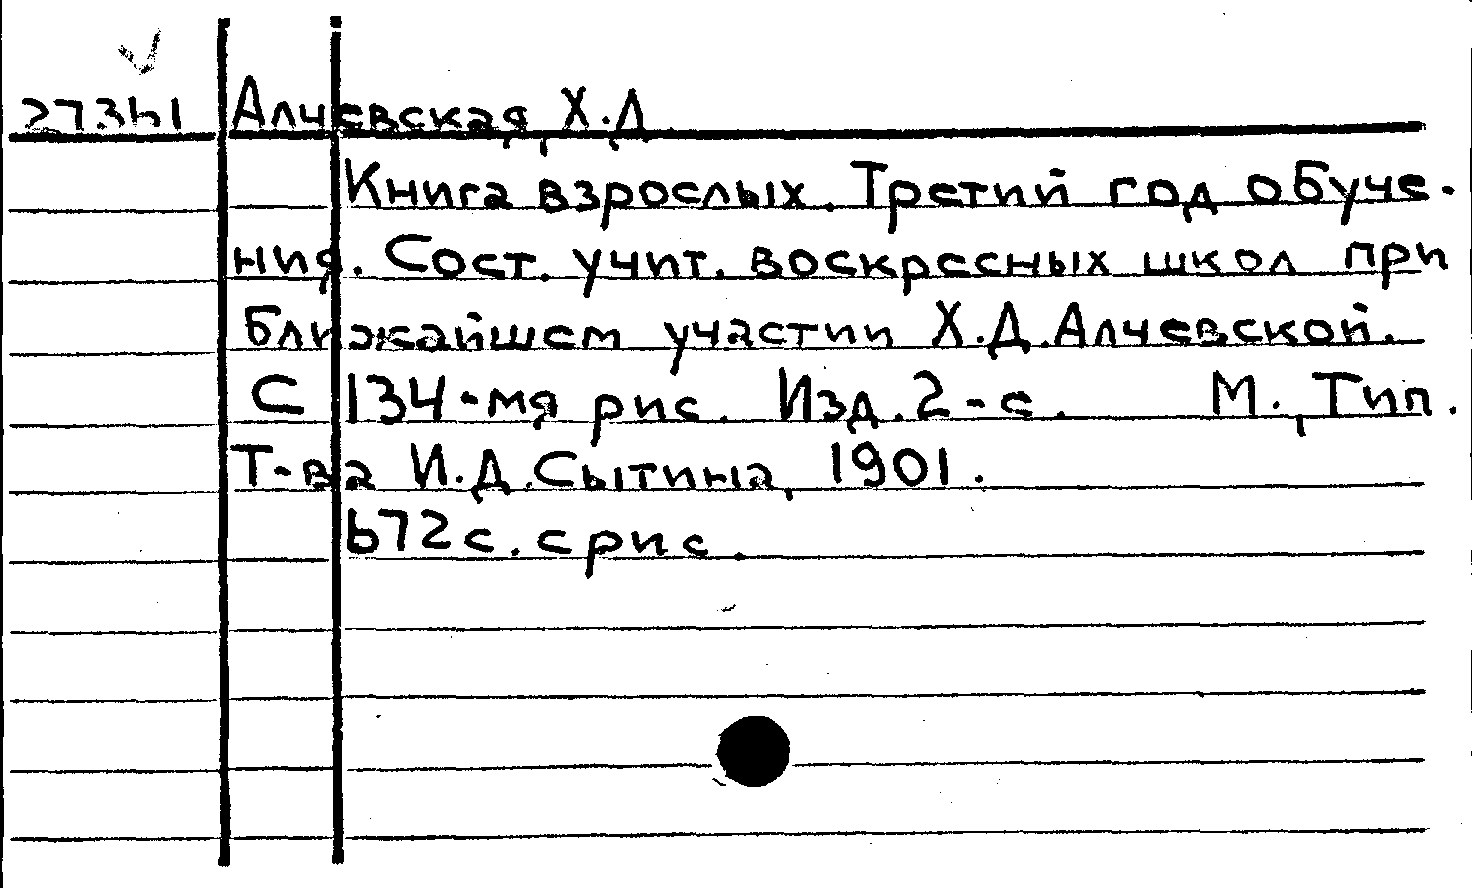 27361 Алчевская, Х.Д.
Книга взрослых. Третий год обуче-
ния. Сост. учит. воскресных школ при
ближайшем участии Х.Д.Алчевской.
С 134-мя рис. Изд.2-е. М., Тип.
Т-ва И.Д.Сытина, 1901.
672с. с рис.